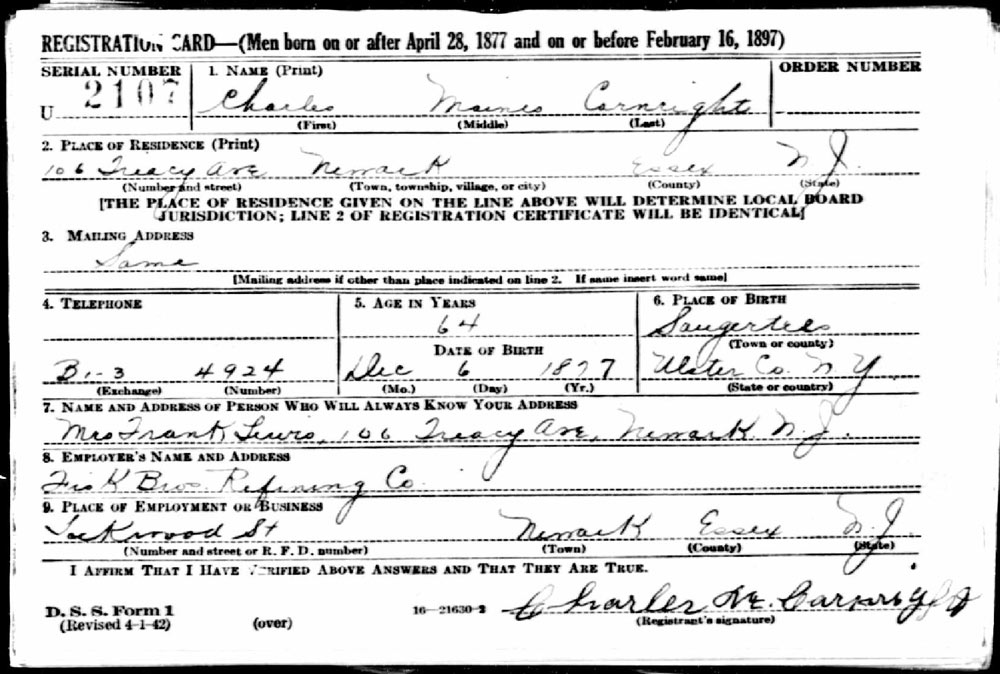 REGISTRATION CARD—(Men born on or after April 28, 1877 and on or before February 16, 1897)
SERIAL NUMBER 1. NAME (Print) ORDER NUMBER
U 2107 Charles Maines Cornright
(First) (Middle) (Last)
2. PLACE OF RESIDENCE (Print)
106 Treacy Ave Newark Essex N. J.
(Number and street) (Town, township, village, or city) (County) (State)
[THE PLACE OF RESIDENCE GIVEN ON THE LINE ABOVE WILL DETERMINE LOCAL BOARD
JURISDICTION; LINE 2 OF REGISTRATION CERTIFICATE WILL BE IDENTICAL]
3. MAILING ADDRESS
Same
[Mailing address if other than place indicated on line 2. If same insert word same]
4. TELEPHONE 5. AGE IN YEARS 6. PLACE OF BIRTH
64 Saugerties
DATE OF BIRTH (Town or county)
Bi-3 4924 Dec 6 1877 Ulster Co. N Y.
(Exchange) (Number) (Mo.) (Day) (Yr.) (State or country)
7. NAME AND ADDRESS OF PERSON WHO WILL ALWAYS KNOW YOUR ADDRESS
Mrs Frank Lewis, 106 Treacy Ave, Newark N. J.
8. EMPLOYER'S NAME AND ADDRESS
Fisk Bros. Refining Co.
9. PLACE OF EMPLOYMENT OR BUSINESS
Lockwood St Newark Essex N. J.
(Number and street or R. F. D. number) (Town) (County) (State)
I AFFIRM THAT I HAVE VERIFIED ABOVE ANSWERS AND THAT THEY ARE TRUE.
D. S. S. Form 1 16—21630-2 Charles M. Carnright
(Revised 4-1-42) (over) (Registrant's signature)